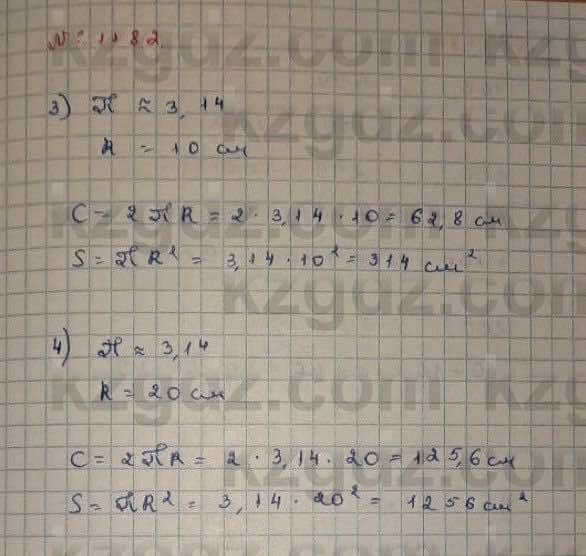 № 1182
3) π ≈ 3,14
R = 10 см
C = 2πR = 2 · 3,14 · 10 = 62,8 см
S = πR² = 3,14 · 10² = 314 см²
4) π ≈ 3,14
R = 20 см
C = 2πR = 2 · 3,14 · 20 = 125,6 см
S = πR² = 3,14 · 20² = 1256 см²
kzgdz.com